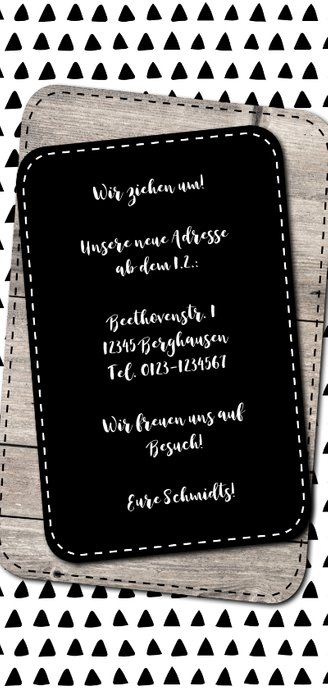 Wir ziehen um!
Unsere neue Adresse
ab dem 1.2.:
Beethovenstr. 1
12345 Berghausen
Tel. 0123-1234567
Wir freuen uns auf
Besuch!
Eure Schmidts!